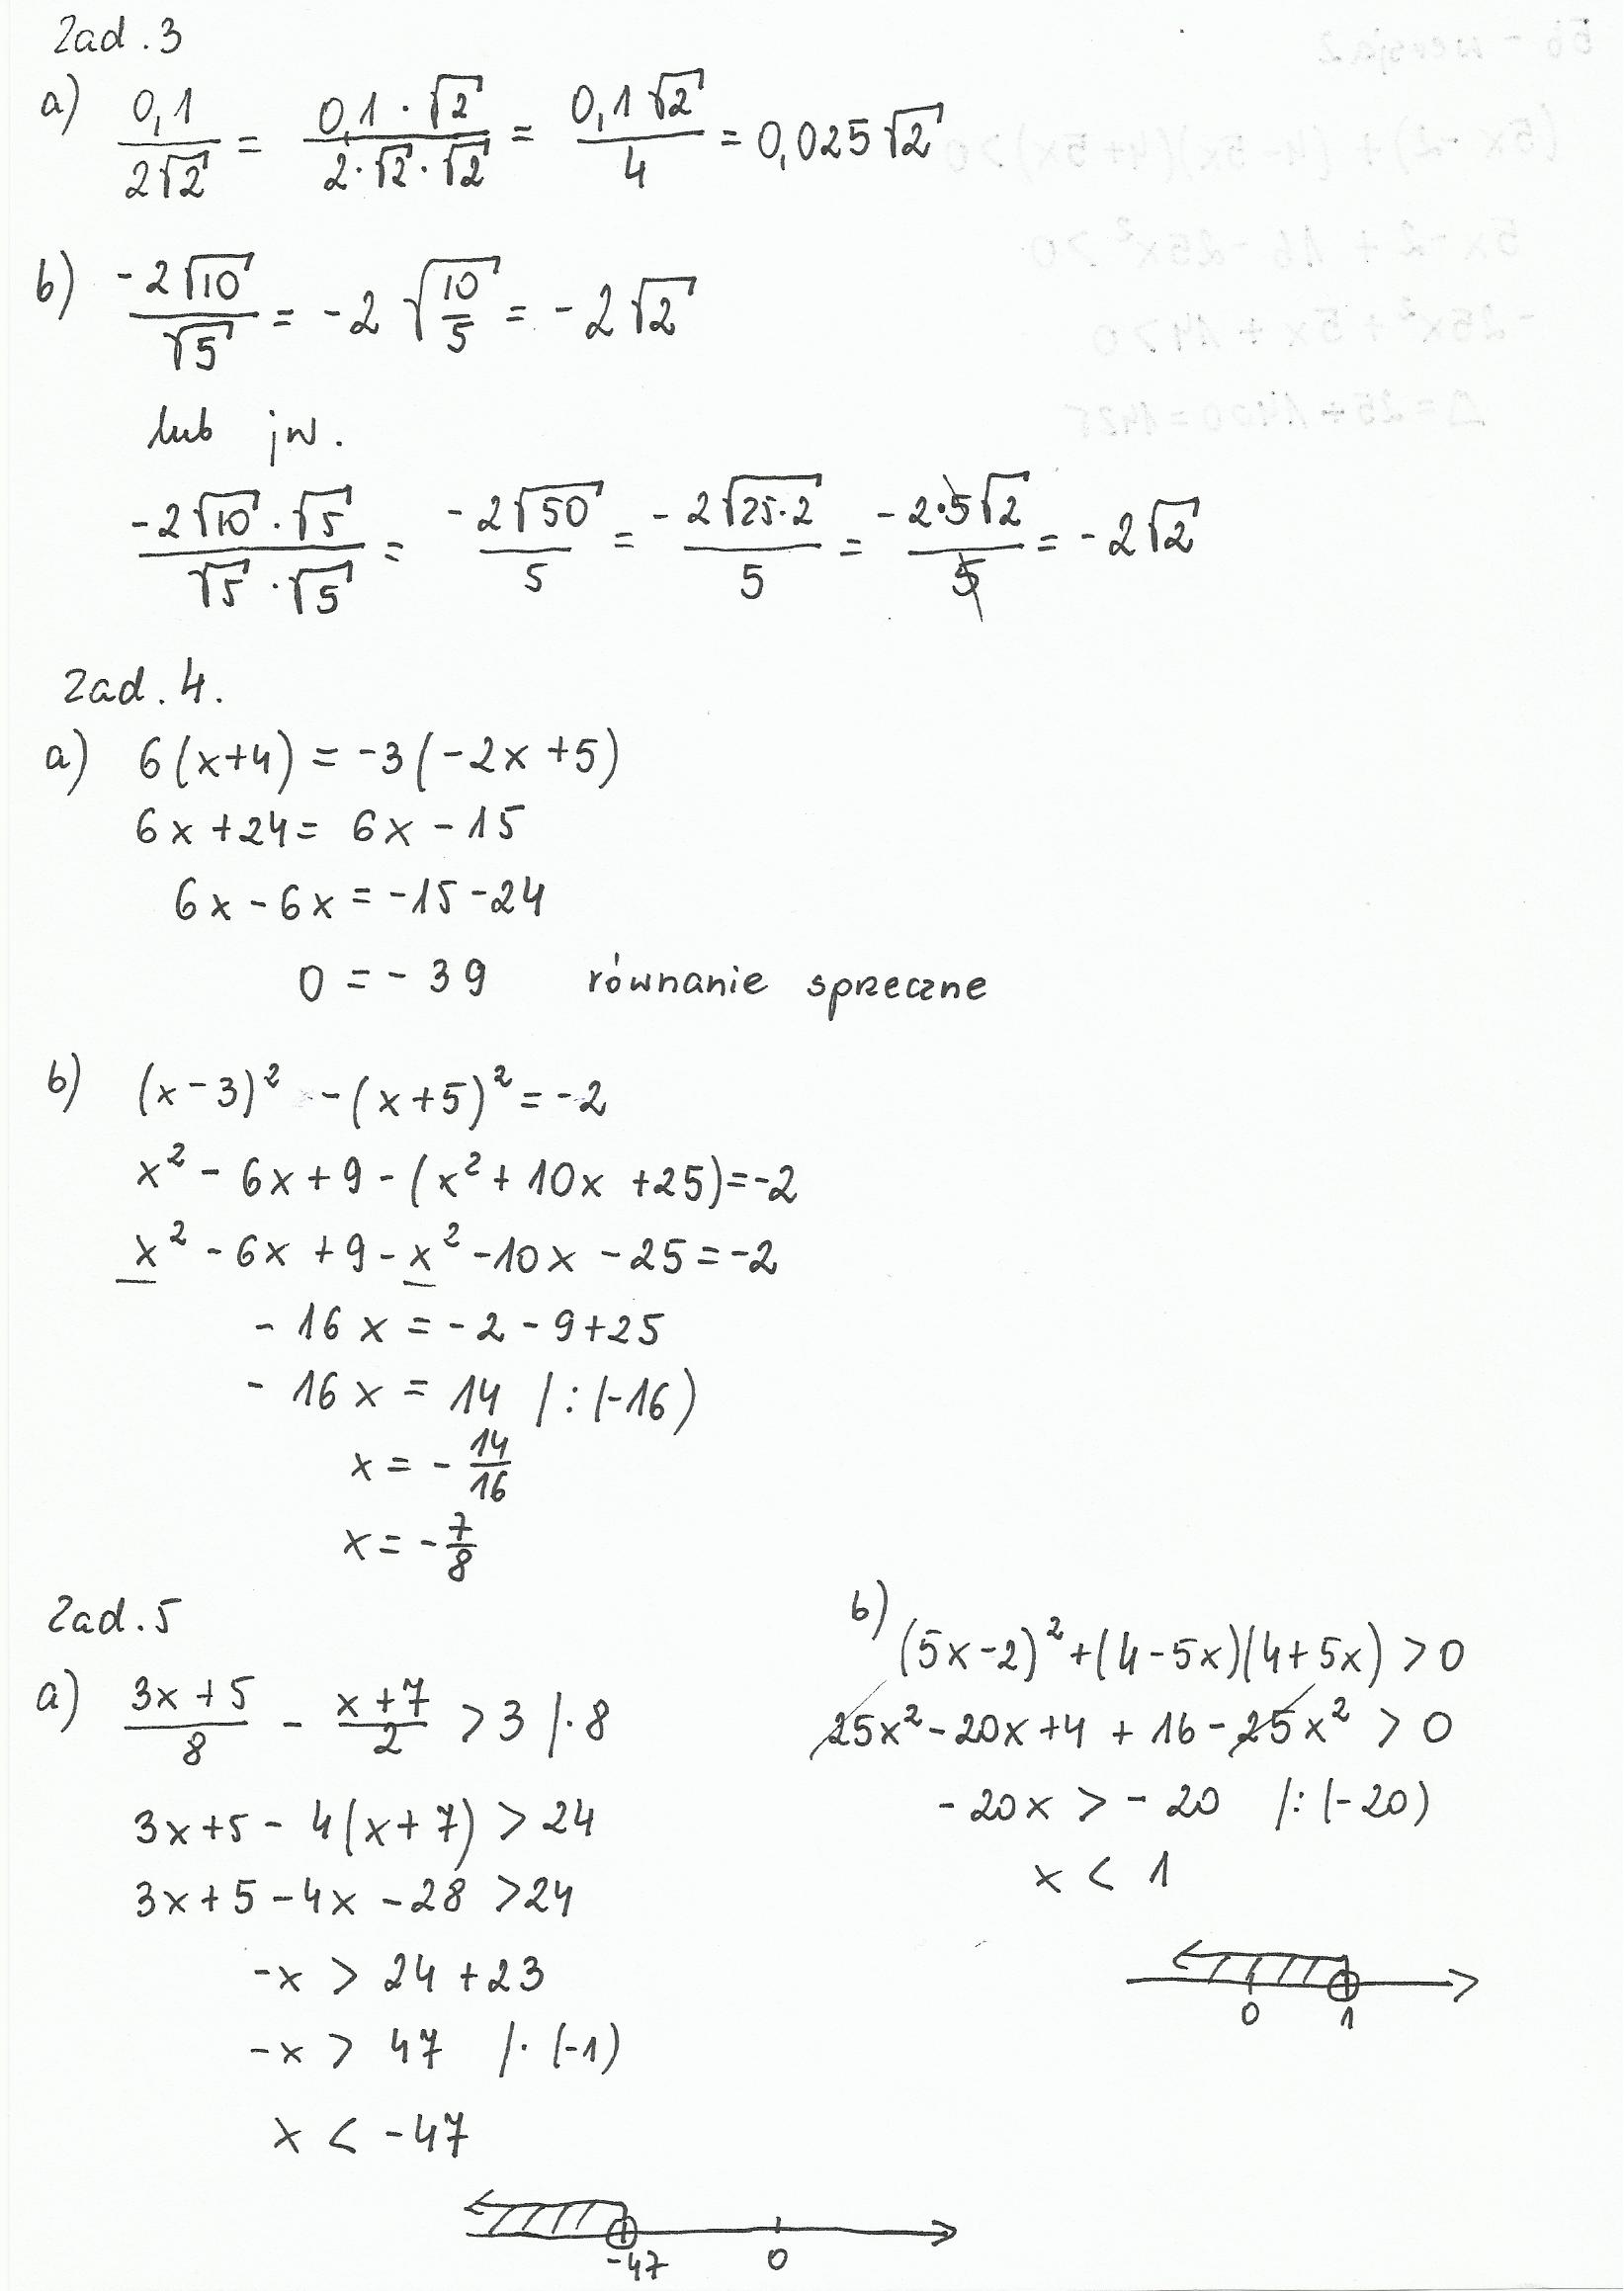 Zad. 3
a) 0,1/2√2 = 0,1·√2/2·√2·√2 = 0,1√2/4 = 0,025√2
b) -2√10/√5 = -2√10/5 = -2√2
lub jw.
-2√10·√5/√5·√5 = -2√50/5 = -2√25·2/5 = -2·5√2/5 = -2√2
Zad. 4.
a) 6(x+4) = -3(-2x+5)
6x+24 = 6x-15
6x-6x = -15-24
0 = -39 równanie sprzeczne
b) (x-3)² -(x+5)² = -2
x² - 6x+9-(x²+10x+25) = -2
x² - 6x+9-x²-10x-25 = -2
-16x = -2-9+25
-16x = 14 /:(-16)
x = -14/16
x = -7/8
Zad. 5
a) 3x+5/8 - x+7/2 > 3 /·8
3x+5-4(x+7) > 24
3x+5-4x-28 > 24
-x > 24+23
-x > 47 /·(-1)
x < -47
-47 0
b) (5x-2)²+(4-5x)(4+5x) > 0
25x²-20x+4+16-25x² > 0
-20x > -20 /:(-20)
x < 1
0 1
5b - wersja 2
(5x-2)+(4-5x)(4+5x)>0
5x-2+16-25x²>0
-25x²+5x+14>0
Δ=25+1400=1425